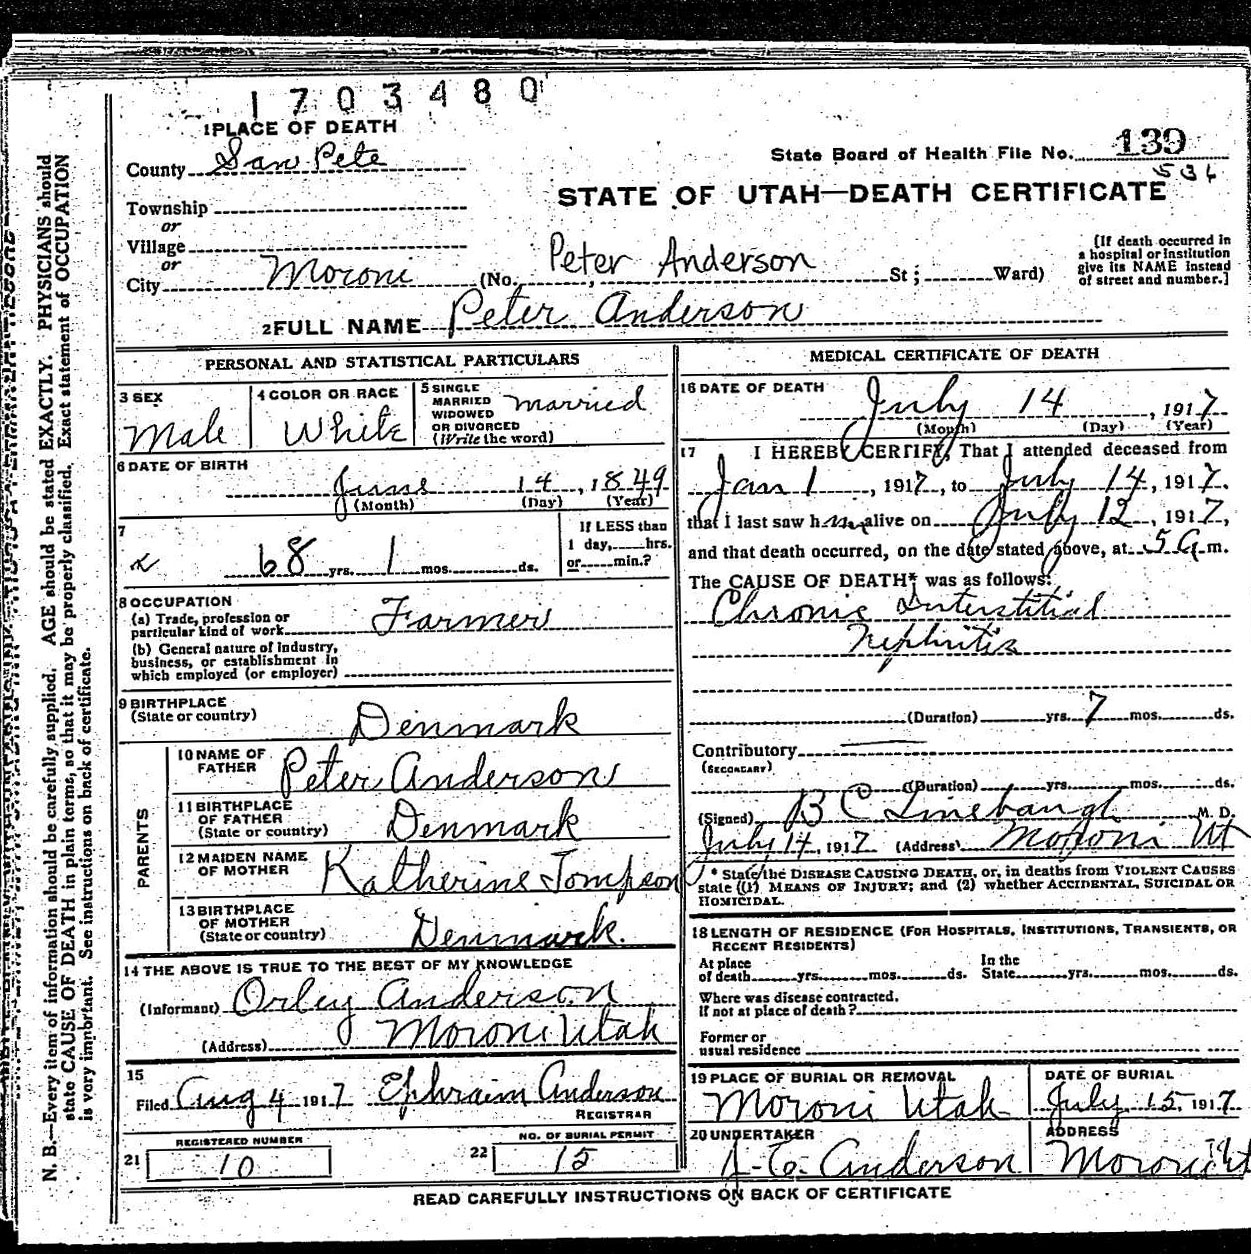 1703480
1 PLACE OF DEATH
County San Pete
State Board of Health File No. 139
536
STATE OF UTAH—DEATH CERTIFICATE
Township
or
Village
or
City Moroni (No. Peter Anderson St; Ward)
(If death occurred in
a hospital or institution
give its NAME instead
of street and number.]
2 FULL NAME Peter Anderson
PERSONAL AND STATISTICAL PARTICULARS
3 SEX
Male
4 COLOR OR RACE
White
5 SINGLE
MARRIED
WIDOWED
OR DIVORCED
(Write the word)
married
6 DATE OF BIRTH
June 14, 1849
(Month) (Day) (Year)
7
68 yrs. 1 mos. ds.
If LESS than
1 day, hrs.
or min.?
8 OCCUPATION
(a) Trade, profession or
particular kind of work Farmer
(b) General nature of industry,
business, or establishment in
which employed (or employer)
9 BIRTHPLACE
(State or country) Denmark
PARENTS
10 NAME OF
FATHER Peter Anderson
11 BIRTHPLACE
OF FATHER
(State or country) Denmark
12 MAIDEN NAME
OF MOTHER Katherine Tompson
13 BIRTHPLACE
OF MOTHER
(State or country) Denmark.
14 THE ABOVE IS TRUE TO THE BEST OF MY KNOWLEDGE
(Informant) Orley Anderson
(Address) Moroni Utah
15
Filed Aug 4 1917 Ephraim Anderson
REGISTRAR
21 REGISTERED NUMBER
10
22 NO. OF BURIAL PERMIT
15
MEDICAL CERTIFICATE OF DEATH
16 DATE OF DEATH
July 14, 1917
(Month) (Day) (Year)
17 I HEREBY CERTIFY, That I attended deceased from
Jan 1, 1917, to July 14, 1917.
that I last saw him alive on July 12, 1917,
and that death occurred, on the date stated above, at 5 a m.
The CAUSE OF DEATH* was as follows:
Chronic Interstitial
Nephritis
(Duration) yrs. 7 mos. ds.
Contributory
(SECONDARY)
(Duration) yrs. mos. ds.
(Signed) B C Linebaugh M. D.
July 14, 1917 (Address) Moroni Ut
* State the DISEASE CAUSING DEATH, or, in deaths from VIOLENT CAUSES
state (1) MEANS OF INJURY; and (2) whether ACCIDENTAL, SUICIDAL OR
HOMICIDAL.
18 LENGTH OF RESIDENCE (FOR HOSPITALS, INSTITUTIONS, TRANSIENTS, OR
RECENT RESIDENTS)
At place
of death yrs. mos. ds.
In the
State yrs. mos. ds.
Where was disease contracted.
If not at place of death?
Former or
usual residence
19 PLACE OF BURIAL OR REMOVAL
Moroni Utah
DATE OF BURIAL
July 15, 1917
20 UNDERTAKER
Anderson
ADDRESS
Moroni Ut
READ CAREFULLY INSTRUCTIONS ON BACK OF CERTIFICATE
N. B.—Every item of information should be carefully supplied. AGE should be stated EXACTLY. PHYSICIANS should
state CAUSE OF DEATH in plain terms, so that it may be properly classified. Exact statement of OCCUPATION
is very important. See instructions on back of certificate.